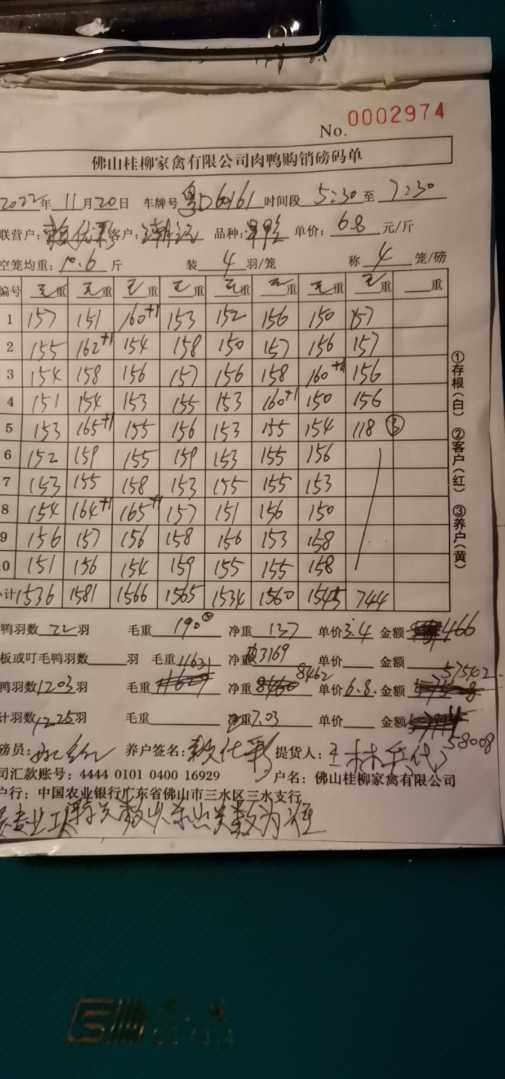 No. 0002974
佛山桂柳家禽有限公司肉鸭购销磅码单
2022年 11月20日 车牌号 粤D60161 时间段 5:30 至 7:30
联营户: 客户: 品种: 单价: 6.8 元/斤
空笼均重: 10.6 斤 装 4 羽/笼 称 4 笼/磅
编号 毛重 毛重 毛重 毛重 毛重 毛重 毛重 毛重 重
1 157 151 160+1 153 152 156 150 157
2 155 162+1 154 158 150 157 156 157
3 154 158 156 157 156 158 160+1 156
4 151 154 153 155 153 160+1 150 156
5 153 165+1 155 156 153 155 154 118 ③
6 152 159 155 159 153 155 156
7 153 155 158 153 155 155 153
8 154 164+1 165+1 157 151 156 150
9 156 157 156 158 156 153 158
10 151 156 154 159 155 155 158
小计 1536 1581 1566 1565 1534 1560 1545 744
①存根(白) ②客户(红) ③养户(黄)
鸭羽数 22 羽 毛重 190 净重 137 单价 3.4 金额 466
板或叮毛鸭羽数 羽 毛重 11631 净重 3169 单价 金额 57542
鸭羽数 1203 羽 毛重 净重 8462 单价 6.8 金额
计羽数 1225 羽 毛重 7.03 单价 金额 58008
磅员: 养户签名: 提货人:
司汇款账号: 4444 0101 0400 16929 户名: 佛山桂柳家禽有限公司
户行: 中国农业银行广东省佛山市三水区三水支行